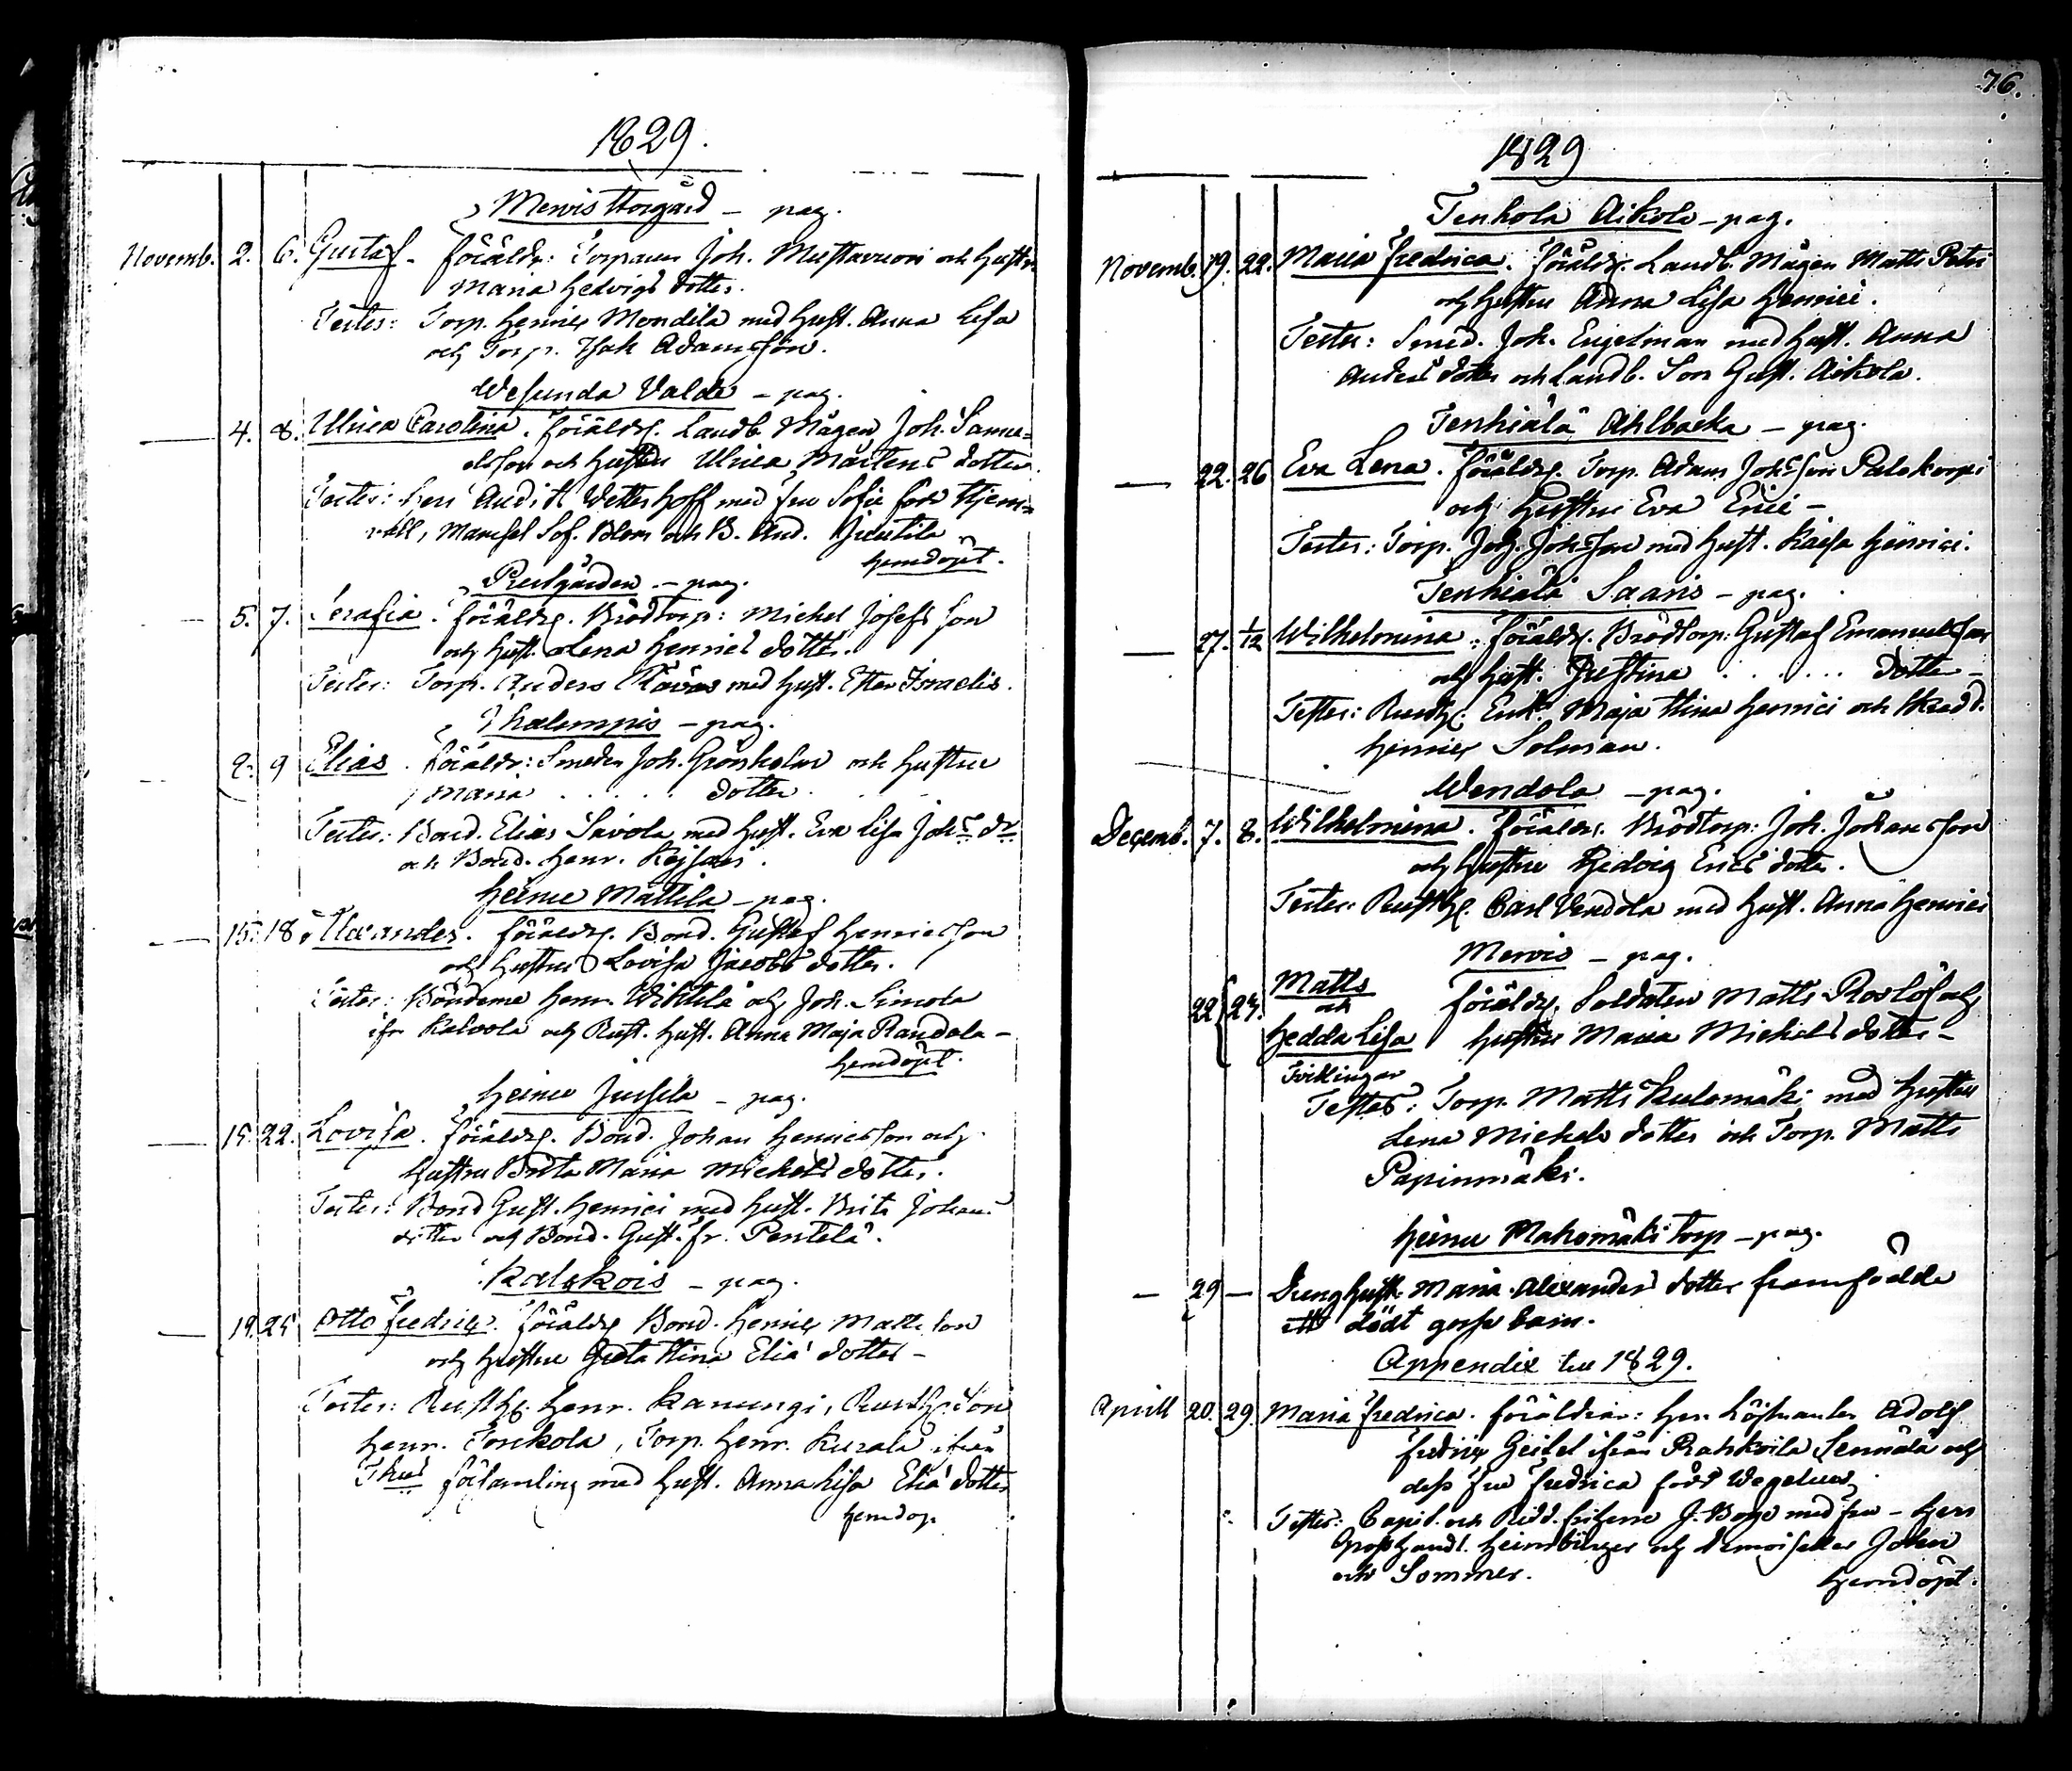 1829.
Mervis Horgård - pag.
Novemb. 2. 6. Gustaf. föräldr: Torparen Joh. Mustavuori och hustru
Maria Hedvigs dotter.
Testes: Torp. Henric Mendilä med hust. Anna Lisa
och Torp. Isak Adamsson.
Wesunda Valde - pag.
4. 8. Ulrica Carolina. föräldr. Landb. Mågen Joh. Samu=
elsson och hustru Ulrica Mårtens dotter.
Testes: Herr Audit Wetterhoff med fru Sofie född Hjem=
väll, Mamsel Sof. Blom och B. And.
hemdöpt.
Prestgården - pag.
5. 7. Serafia. föräldr. Brödtorp: Michel Josefs son
och hust. Lena Henrics dotter.
Testes: Torp. Anders Rävas med hust. Ester Israelis.
Ihalempis - pag.
8. 9 Elias. föräldr: Smeden Joh. Grönholm och hustru
Maria . . . . . dotter.
Testes: Bond. Elias Savola med hust. Eva Lisa Johs dr
och Bond. Henr. Keijsari.
Heinu Mattila - pag.
15. 18. Alexander. föräldr. Bond. Gustaf Henricsson
och hustru Lovisa Jacobs dotter.
Testes: Bönderne Henr. Wihtilä och Joh. Simola
ifr Kalvola och Rust. hust. Anna Maja Randala -
hemdöpt.
Heinu Jussila - pag.
15. 22. Lovisa. föräldr. Bond. Johan Henricsson och
hustru Brita Maria Michels dotter.
Testes: Bond Gust. Henrici med hust. Brita Johans
dotter och Bond. Gust. fr. Pentilä.
Kalokois - pag.
19. 25 Otto Fredric. föräldr Bond. Henric Matts son
och hustru Greta Stina Eliæ dotter -
Testes: Rusth. Henr. Kanungi, Rusth. Son
Henr. Torikola, Torp. Henr. Kurala ifrån
Thus församling med hust. Anna Lisa Eliæ dotter
hemdöp.
76.
1829
Tenhola Aikola - pag.
Novemb. 19. 22. Maria Fredrica. föräldr. Landb. Mågen Matts Petri
och hustru Anna Lisa Henrici.
Testes: Smed. Joh. Engelman med hust. Anna
Anders dotter och Landb. Son Gust. Aikola.
Tenhiälä Ahlbacka - pag.
22. 26 Eva Lena. föräldr. Torp. Adam Johsson Palokorpi
och hustru Eva Erici -
Testes: Torp. Joh. Johsson med hust. Kaisa Henrici.
Tenhiälä Saaris - pag.
27. 1/12 Wilhelmina. föräldr. Brödtorp: Gustaf Emanuelsson
och hust. Justina . . . . . . dotter -
Testes: Rusth. Enk. Maja Stina Henrici och Skrädd.
Henric Solman.
Wendola - pag.
Decemb. 7. 8. Wilhelmina. föräldr. Brödtorp: Joh. Johansson
och hustru Hedvig Erics dotter.
Testes: Rusth. Carl Vendola med hust. Anna Henrici
Mervis - pag.
22 { 27. Matts
och
Hedda Lisa
Tvillingar
föräldr. Soldaten Matts Roslöf och
hustru Maria Michels dotter -
Testes: Torp. Matts Kulomäki med hustru
Lena Michels dotter och Torp. Matts
Papinmäki.
Heinu Mahomäki Torp - pag.
- 29 - Dräng hust. Maria Alexanders dotter framfödde
ett dödt gosse barn.
Appendix till 1829.
Aprill 20. 29. Maria Fredrica. föräldrar: Herr Löjtnanten Adolf
Fredric Geitel ifrån Rahkoila Lennälä och
dess fru Fredrica född Wegelius
Testes: Capit. och Ridd. friherre J. Boije med fru - Herr
Grosshandl. Heimbürger och Demoiseller John
och Sommer.
hemdöpt.